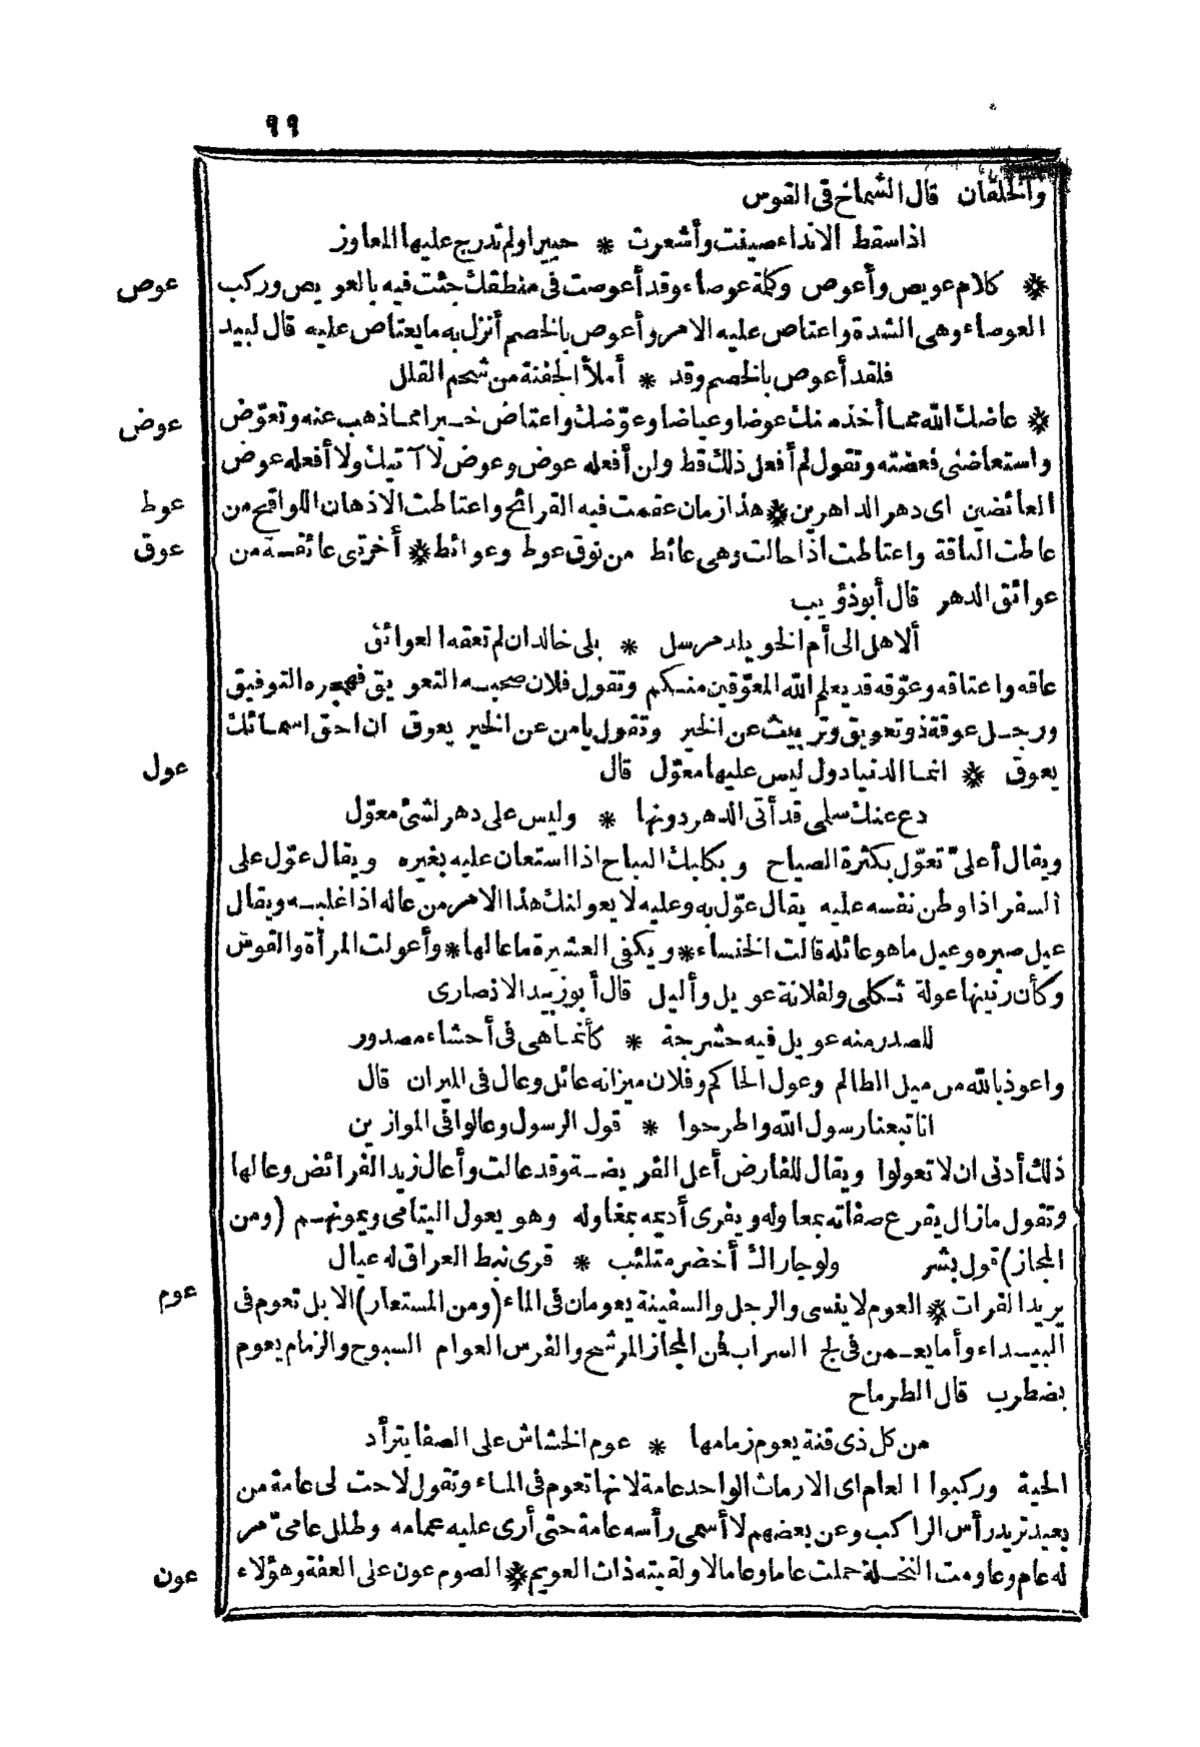 ٩٩
والخلقان قال الشماخ فى القوس
اذا سقط الانداء صينت وأشعرت * حبيرا ولم تدرج عليها المعاوز
عوص
* كلام عويص وأعوص وكلمة عوصاء وقد أعوصت فى منطقك جئت فيه بالعويص وركب
العوصاء وهى الشدة واعتاص عليه الامر وأعوص بالخصم أنزل به ما يعتاص عليه قال لبيد
فلقد أعوص بالخصم وقد * أملأ الجفنة من شحم القلل
عوض
* عاضك الله مما أخذ منك عوضا وعياضا وعوّضك واعتاض خيرا مما ذهب عنه وتعوّض
واستعاضنى فعضته وتقول لم أفعل ذلك قط ولن أفعله عوض وعوض لا آتيك ولا أفعله عوض
عوط
العائضين اى دهر الداهرين * هذا زمان عقمت فيه القرائح واعتاطت الاذهان اللواقح من
عوق
عاطت الناقة واعتاطت اذا حالت وهى عائط من نوق عوط وعوائط * أخرتنى عائقة من
عوائق الدهر قال أبو ذؤيب
ألا هل الى أم الخويلد مرسل * بلى خالد ان لم تعقه العوائق
عاقه واعتاقه وعوّقه قد يعلم الله المعوّقين منكم وتقول فلان صحبه التعويق فهجره التوفيق
ورجل عوقة ذو تعويق وتربيث عن الخير وتقول يا من عن الخير يعوق ان احق اسمائك
عول
يعوق * انما الدنيا دول ليس عليها معوّل قال
دع عنك سلمى قد أتى الدهر دونها * وليس على دهر لشئ معوّل
ويقال أعلىّ تعوّل بكثرة الصياح وبكلبك النباح اذا استعان عليه بغيره ويقال عوّل على
السفر اذا وطن نفسه عليه يقال عوّل به وعليه لا يعولنك هذا الامر من عاله اذا غلبه ويقال
عيل صبره وعيل ما هو عائله قالت الخنساء * ويكفى العشيرة ما عالها * وأعولت المرأة والقوس
وكأن رنينها عولة ثكلى ولفلانة عويل وأليل قال أبو زبيد الانصارى
للصدر منه عويل فيه حشرجة * كأنما هى فى أحشاء مصدور
واعوذ بالله من ميل الظالم وعول الحاكم وفلان ميزانه عائل وعال فى الميزان قال
انا تبعنا رسول الله واطرحوا * قول الرسول وعالوا فى الموازين
ذلك أدنى ان لا تعولوا ويقال للفارض أعل الفريضة وقد عالت وأعال زيد الفرائض وعالها
وتقول ما زال يقرع صفاته بمعاوله ويفرى أديمه بمغاوله وهو يعول اليتامى ويمونهم (ومن
المجاز) قول بشر ولو جاراك أخضر متلئب * قرى نبط العراق له عيال
عوم
يريد الفرات * العوم لا ينسى والرجل والسفينة يعومان فى الماء (ومن المستعار) الابل تعوم فى
البيداء وأما يعمن فى لج السراب فمن المجاز المرشح والفرس العوام السبوح والزمام يعوم
يضطرب قال الطرماح
من كل ذى قنة يعوم زمامها * عوم الخشاش على الصفا يترأد
الحية وركبوا العام اى الارماث الواحد عامة لانها تعوم فى الماء وتقول لاحت لى عامة من
بعيد تريد رأس الراكب وعن بعضهم لا أسمى رأسه عامة حتى أرى عليه عمامه وطلل عامىّ مر
عون
له عام وعاومت النخلة حملت عاما وعاما لا ولقيته ذات العويم * الصوم عون على العفة وهؤلاء